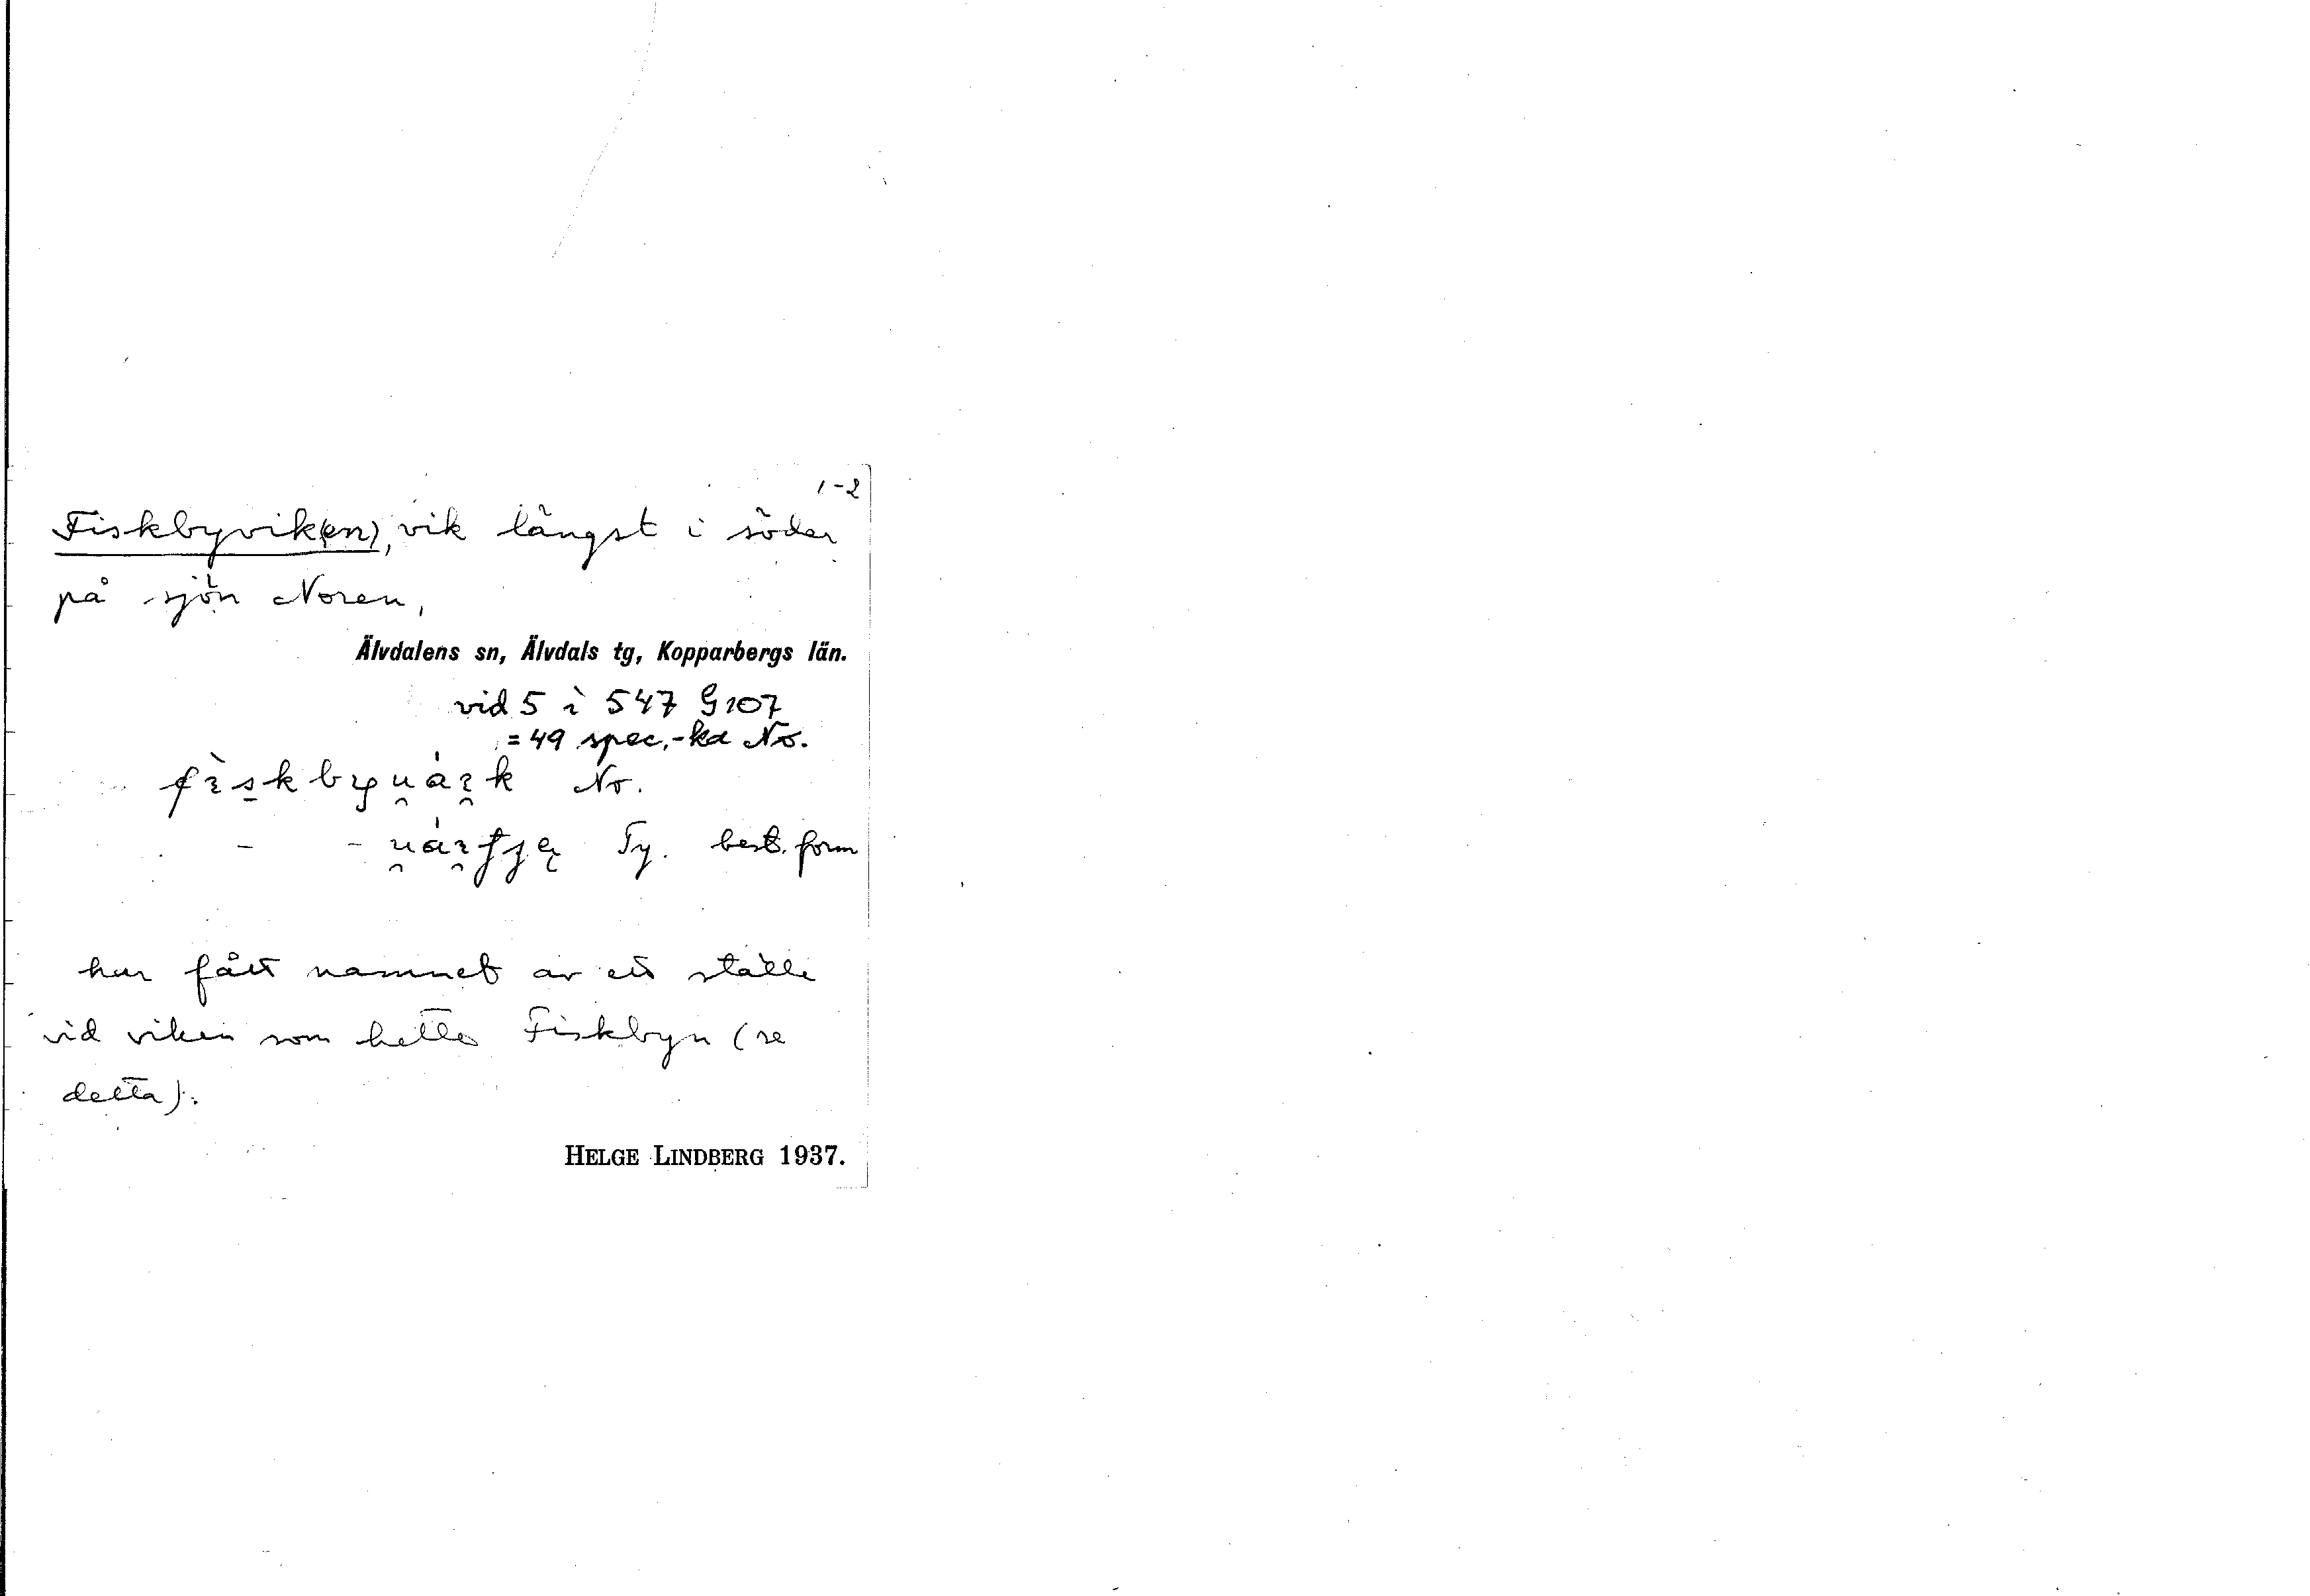 1-2
Fiskbyvik(en), vik längst i söder
på sjön Noren,
Älvdalens sn, Älvdals tg, Kopparbergs län.
vid 5 i 547 G107
=49 spec.-ka No.
No.
- - Ty. best. form
har fått namnet av ett ställe
vid viken som hette Fiskbyn (se
detta).
HELGE LINDBERG 1937.